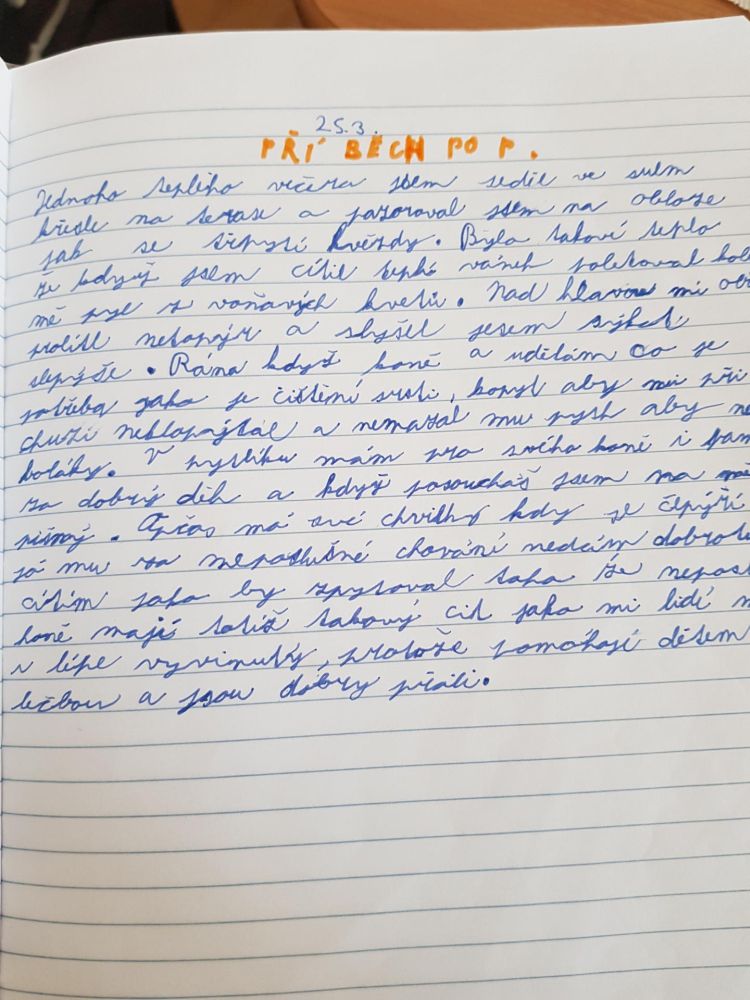 25.3.
PŘÍ BĚCH PO P.
Jednoho teplího večera jsem sedil ve svém
křesle na terase a pozoroval jsem na obloze
jak se třpytí hvězdy. Bylo takové teplo
že když jsem cítil teplí vánek poletoval kole
mě pyl z voňavých květů. Nad hlavou mi
prolítl netopýr a slyšel jesem sýkat
slepýše. Rána když koně a udělám co je
potřeba jako je čištění srsti, kopyt aby mi při
chuzi neklopýtal a nemazal mu pysk aby
boláky. V pytlíku mám pro svého koně i
za dobrý děh a když posouchaš jsem na
písmý. Občas má své chvilky kdy se čepýří
já mu za neposlušné chování nedám
cítím jako by zpytoval toho že
koně mají totiž takový cit jako mi lidí
v lépe vyvinutý, protože pomáhají dětem
léčbou a jsou dobry přáli.